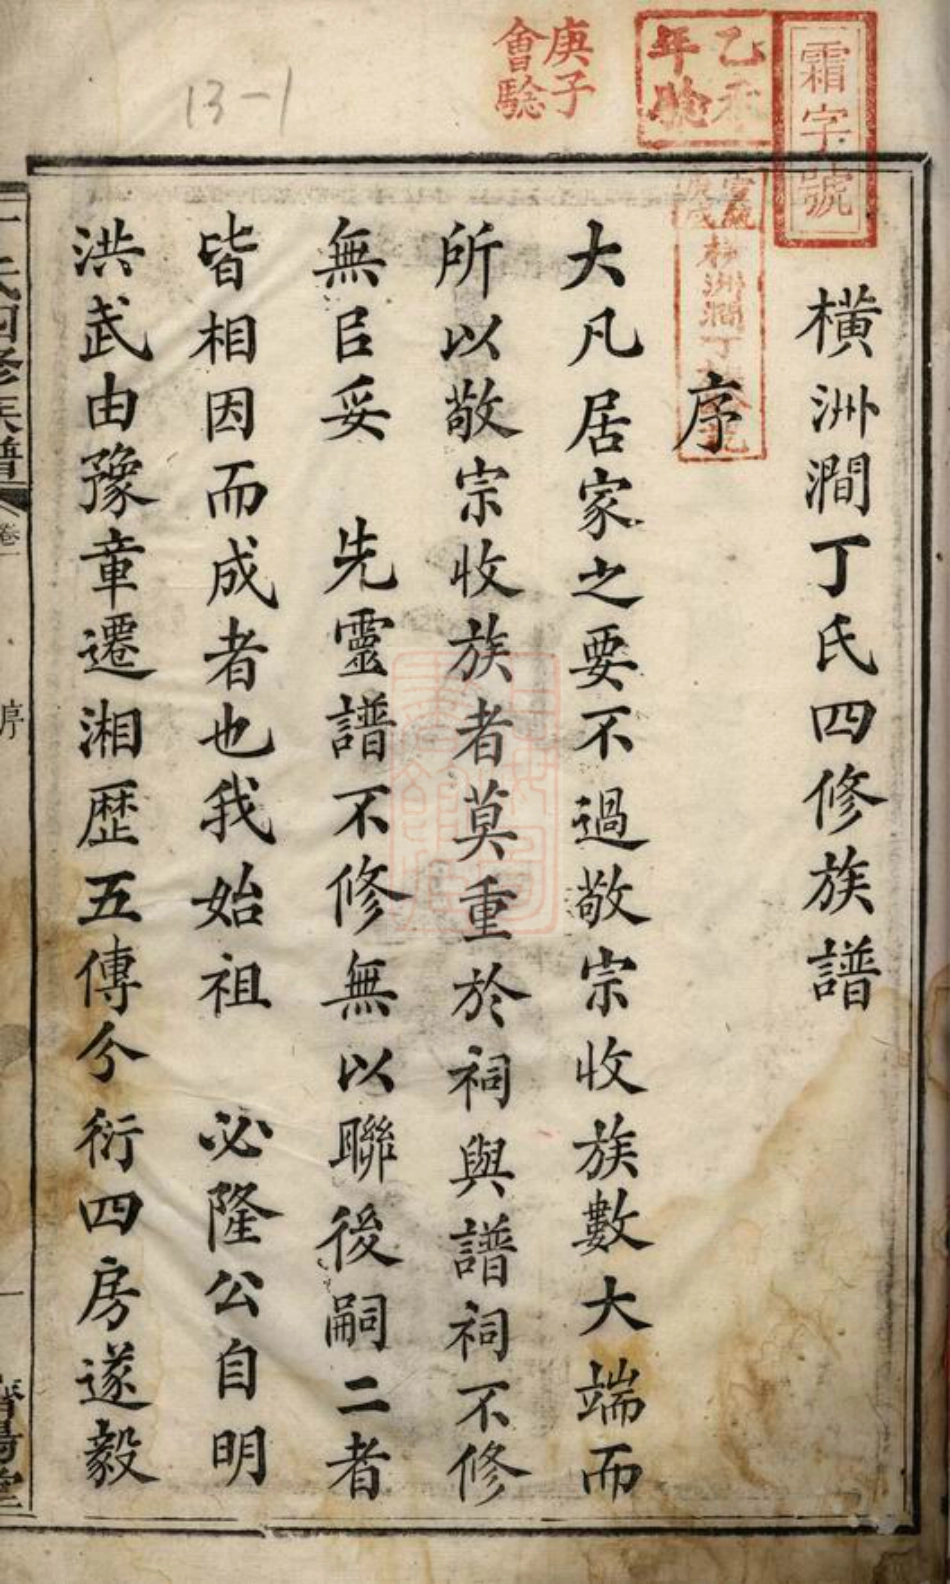 霜字號
乙未年驗
庚子會驗
13-1
橫洲澗丁氏四修族譜
序
大凡居家之要不過敬宗收族數大端而
所以敬宗收族者莫重於祠與譜祠不修
無㠯妥　先靈譜不修無以聯後嗣二者
皆相因而成者也我始祖　必隆公自明
洪武由豫章遷湘歷五傳今衍四房遂毅
氏四修族譜
卷一
序
一
濟陽堂